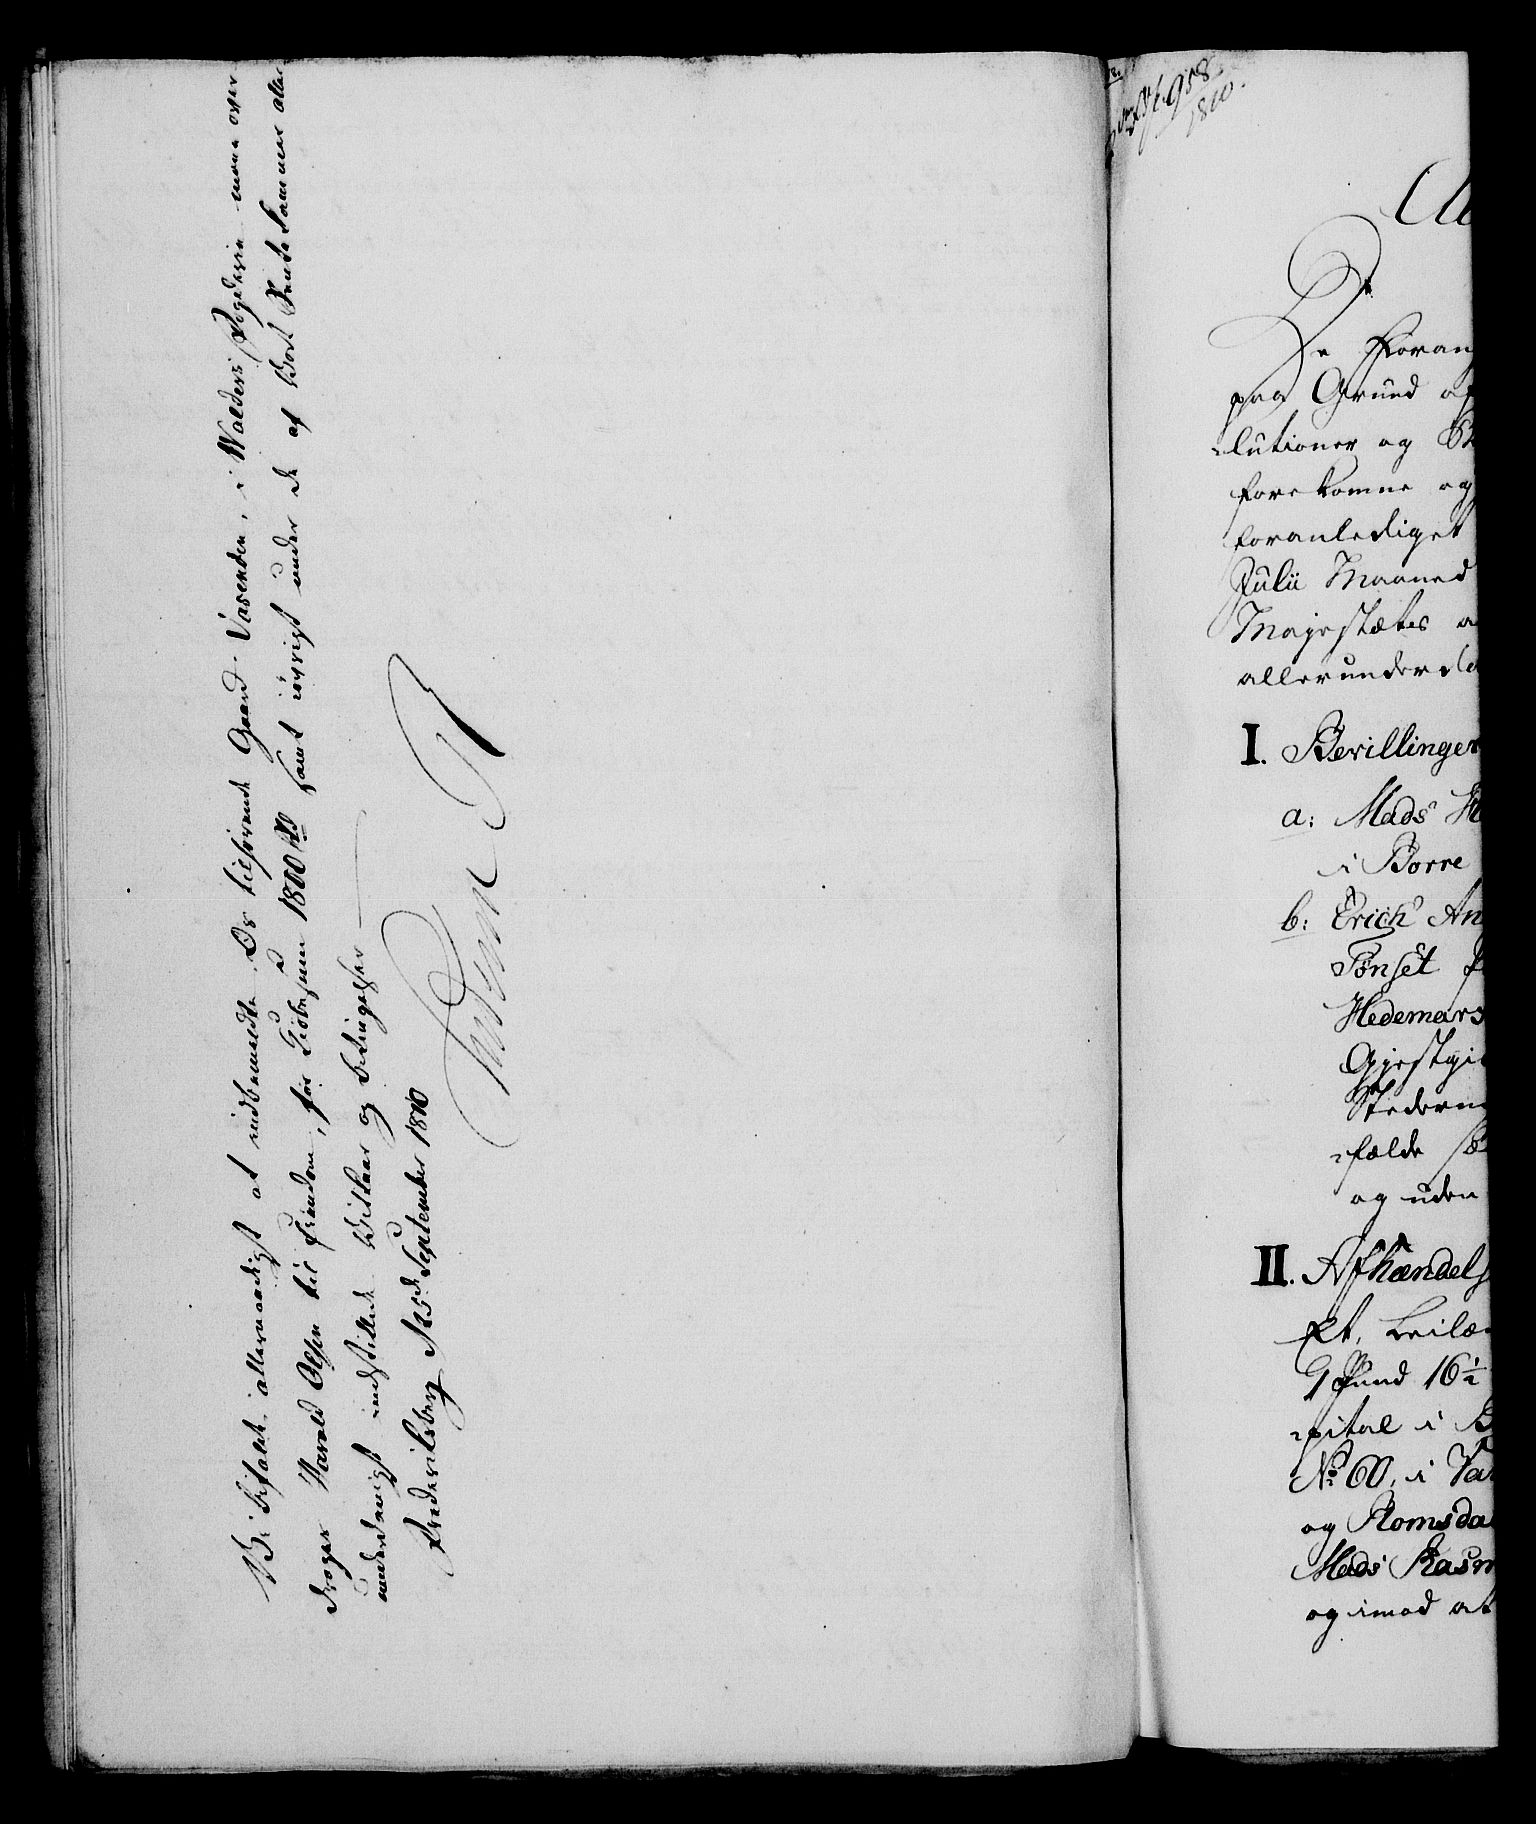 Vi bifalde allernaadigst at indbemeldte, Os tilhørende Gaard Vasenden, i Walders Fogderie maae over-
drages Harald Olsen til Eiendom, for Kiøbesum 1800 rd samt iøvrigt under de af Vort Rentekammer aller-
underdanigst indstillede Vilkaar og Betingelser
Frederiksberg d 25de September 1810
Frederik R
958
1810.
Al
De Foran
paa Grund af
lutioner og
forekomne og
foranlediget
Julii Maaned
Majestætes a
allerunderda
I. Bevillinger
a: Mads
i Borre
b: Erich An
Tønset P
Hedemars
Gjestgi
Stederne
fælde
og uden
II. Afhændels
Et, beilæ
1 Pund 16½
pital i B
No 60, i Va
og Romsda
Mads Rasm
og imod at